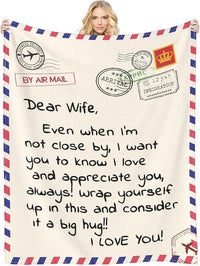 BY AIR MAIL
ARRIVED
IMMIGRATION
Dear Wife,
Even when i'm
not close by, i want
you to know i love
and appreciate you,
always! wrap yourself
up in this and consider
it a big hug!!
I LOVE YOU!